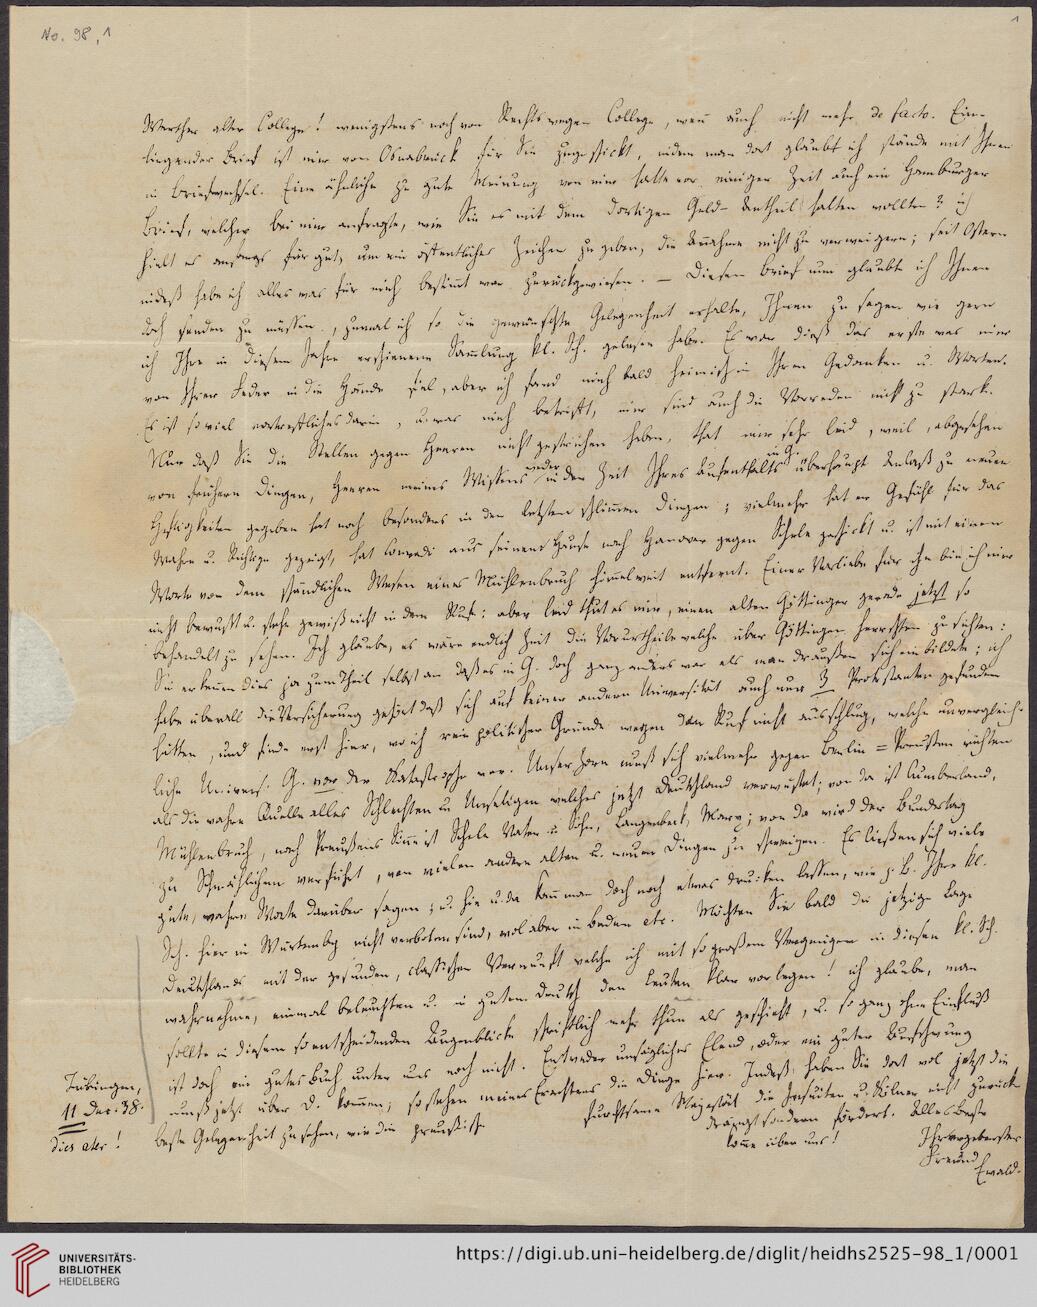 No. 98,1
1
Werther alter College! wenigstens noch von Rechtswegen College, wenn auch nicht mehr de facto. Ein-
liegender Brief ist mir von Osnabrück für Sie zugeschickt, indem man dort glaubt ich stände mit Ihnen
in Briefwechsel. Eine ähnliche zu gute Meinung von mir hatte vor einiger Zeit auch ein Hamburger
Brief, welcher bei mir anfragte, wie Sie es mit dem dortigen Geld-Antheil halten wollten? ich
hielt es anfangs für gut, um ein öffentliches Zeichen zu geben, die Annahme nicht zu verweigern; seit Ostern
indeß habe ich alles was für mich bestimmt war zurückgewiesen. — Diesen Brief nun glaubte ich Ihnen
doch senden zu müssen, zumal ich so die gewünschte Gelegenheit erhalte, Ihnen zu sagen wie gern
ich Ihre in diesem Jahre erschienene Sammlung kl. Sch. gelesen habe. Es war dieß das erste was mir
von Ihrer Feder in die Hände fiel, aber ich fand mich bald heimisch in Ihren Gedanken u. Worten.
Es ist so viel vortreffliches darin, u. was mich betrifft, mir sind auch die Vorreden nicht zu stark.
Nur daß Sie die Stellen gegen Heeren nicht gestrichen haben, that mir sehr leid, weil, abgesehen
von frühern Dingen, Heeren meines Wissens weder in der Zeit Ihres Aufenthalts in G. überhaupt Anlaß zu neuen
Heftigkeiten gegeben hat noch besonders in den letzten schlimmen Dingen; vielmehr hat er Gefühl für das
Wahre u. Richtige gezeigt, hat Conradi aus seinem Hause nach Hanover gegen Schele geschickt u. ist mit einem
Worte von dem schändlichen Wesen eines Mühlenbruch himmelweit entfernt. Einer Vorliebe für ihn bin ich mir
nicht bewußt u. stehe gewiß nicht in dem Ruf: aber leid thut es mir, einen alten Göttinger gerade jetzt so
behandelt zu sehen. Ich glaube, es wäre endlich Zeit die Vorurtheile welche über Göttingen herrschten zu sichten:
Sie erkennen dies ja zum Theil selbst an daß es in G. doch ganz anders war als man draußen sich einbildete; ich
habe überall die Versicherung gehört daß sich auf keiner andern Universität auch nur 3 Protestanten gefunden
hätten, und finde erst hier, wo ich rein politischer Gründe wegen den Ruf nicht ausschlug, welche unvergleich-
liche Univers. G. vor der Katastrophe war. Unser Zorn muß sich vielmehr gegen Berlin = Preußen richten
als die wahre Quelle alles Schlechten u. Unseligen welches jetzt Deutschland verwüstet; von da ist Cumberland,
Mühlenbruch, nach Preußens Sinn ist Schele Vater u. Sohn, Langenbeck, Marx; von da wird der Bundestag
zu Schmählichem verführt, von vielen andern alten u. neuen Dingen zu schweigen. Es ließen sich viele
gute, wahre Worte darüber sagen; u. hie u. da kann man doch noch etwas drucken lassen, wie z. B. Ihre kl.
Sch. hier in Würtembg nicht verboten sind, wol aber in Baden etc. Möchten Sie bald die jetzige Lage
Deutschlands mit der gesunden, classischen Vernunft welche ich mit so großem Vergnügen in diesen kl. Sch.
wahrnehme, einmal beleuchten u. in gutem Deutsch den Leuten klar vorlegen! ich glaube, man
sollte in diesem so entscheidenden Augenblicke schriftlich mehr thun als geschieht, u. so ganz ohne Einfluß
ist doch ein gutes Buch unter uns noch nicht. Entweder unsägliches Elend, oder ein guter Umschwung
muß jetzt über D. kommen; so stehen meines Erachtens die Dinge hier. Indeß haben Sie dort wol jetzt die
beste Gelegenheit zu sehen, wie die preußisch
furchtsame Majestät die Jesuiten u. Kölner nicht zurück
drängt sondern fördert. Alles Beste
komme über uns!
Ihr ergebenster
Freund
Ewald.
Tübingen,
11 Dec. 38.
dies ater!
UNIVERSITÄTS-
BIBLIOTHEK
HEIDELBERG
https://digi.ub.uni-heidelberg.de/diglit/heidhs2525-98_1/0001